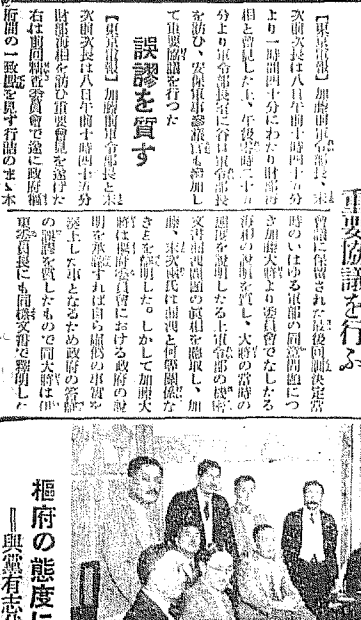 重要協議を行ふ
【東京電報】加藤前軍令部長、末
次前次長は八日午前十時四十五分
より一時間四十分にわたり財部海
相と會見した上、午後零時二十五
分より軍令部長室に谷口軍令部長
を訪ひ、安保軍事參議官も參加し
て重要協議を行つた
誤謬を質す
【東京電報】加藤前軍令部長と末
次前次長は八日午前十時四十五分
財部海相を訪ひ重要會見を遂げた
右は前回精査委員會で遂に政府樞
府間の一致點を見ず行詰のまゝ本
會議に保留された最後回訓決定當
時のいはゆる軍部の同意問題につ
き加藤大將より委員會でなしたる
海相の說明を質し、大將の當時の
態度を說明したる上軍令部の機密
文書漏洩問題の眞相を聽取し、加
藤、末次兩氏は漏洩と何等關係な
きことを釋明した。しかして加藤大
將は樞府委員會における政府の說
明を承認すれば自ら虛僞の事實を
奏上した事となるため政府の答辯
の誤謬を質したもので同大將は伊
東委員長にも同樣文書で釋明した
樞府の態度に
＝與黨有志